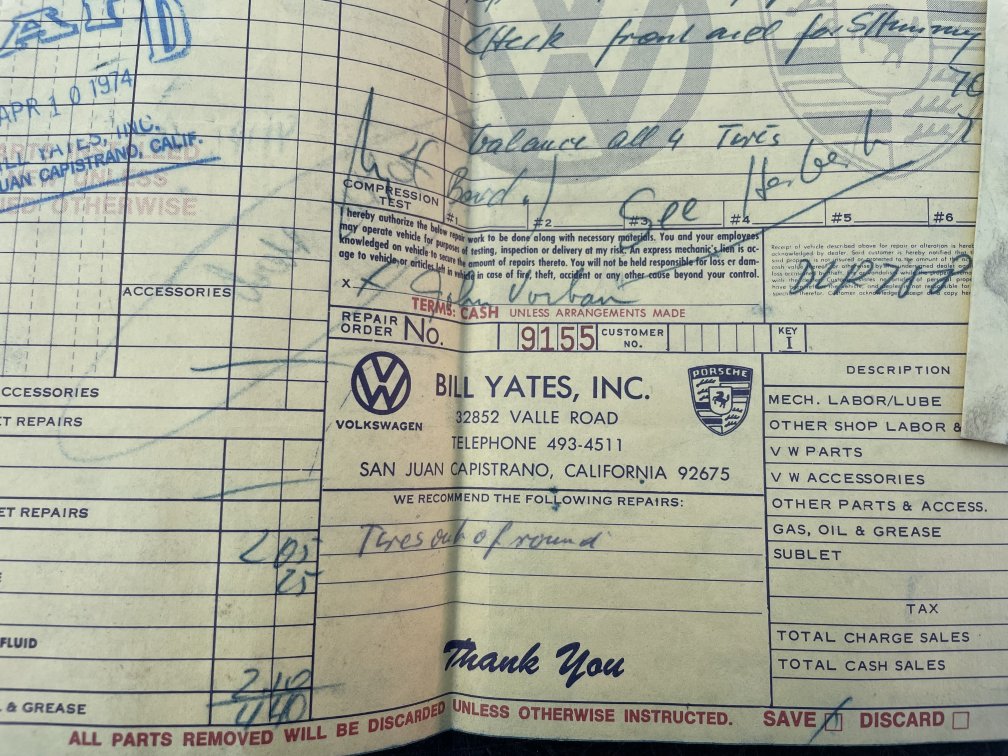 APR 10 1974
YATES, INC.
JUAN CAPISTRANO, CALIF.
OTHERWISE
Check front end for Shimmy
balance all 4 Tires
COMPRESSION TEST #1 #2 #3 #4 #5 #6
See Herbert
I hereby authorize the below repair work to be done along with necessary materials. You and your employees
may operate vehicle for purposes of testing, inspection or delivery at my risk. An express mechanic's lien is ac-
knowledged on vehicle to secure the amount of repairs thereto. You will not be held responsible for loss or dam-
age to vehicle or articles left in vehicle in case of fire, theft, accident or any other cause beyond your control.
X X John Vorban
TERMS: CASH UNLESS ARRANGEMENTS MADE
REPAIR ORDER No. 9155 CUSTOMER NO. KEY I
VOLKSWAGEN
BILL YATES, INC.
PORSCHE
32852 VALLE ROAD
TELEPHONE 493-4511
SAN JUAN CAPISTRANO, CALIFORNIA 92675
WE RECOMMEND THE FOLLOWING REPAIRS:
Tires out of round
Thank You
ACCESSORIES
ACCESSORIES
REPAIRS
REPAIRS
2 05
25
FLUID
2 10
& GREASE 4 40
DESCRIPTION
MECH. LABOR/LUBE
OTHER SHOP LABOR &
V W PARTS
V W ACCESSORIES
OTHER PARTS & ACCESS.
GAS, OIL & GREASE
SUBLET
TAX
TOTAL CHARGE SALES
TOTAL CASH SALES
ALL PARTS REMOVED WILL BE DISCARDED UNLESS OTHERWISE INSTRUCTED. SAVE DISCARD